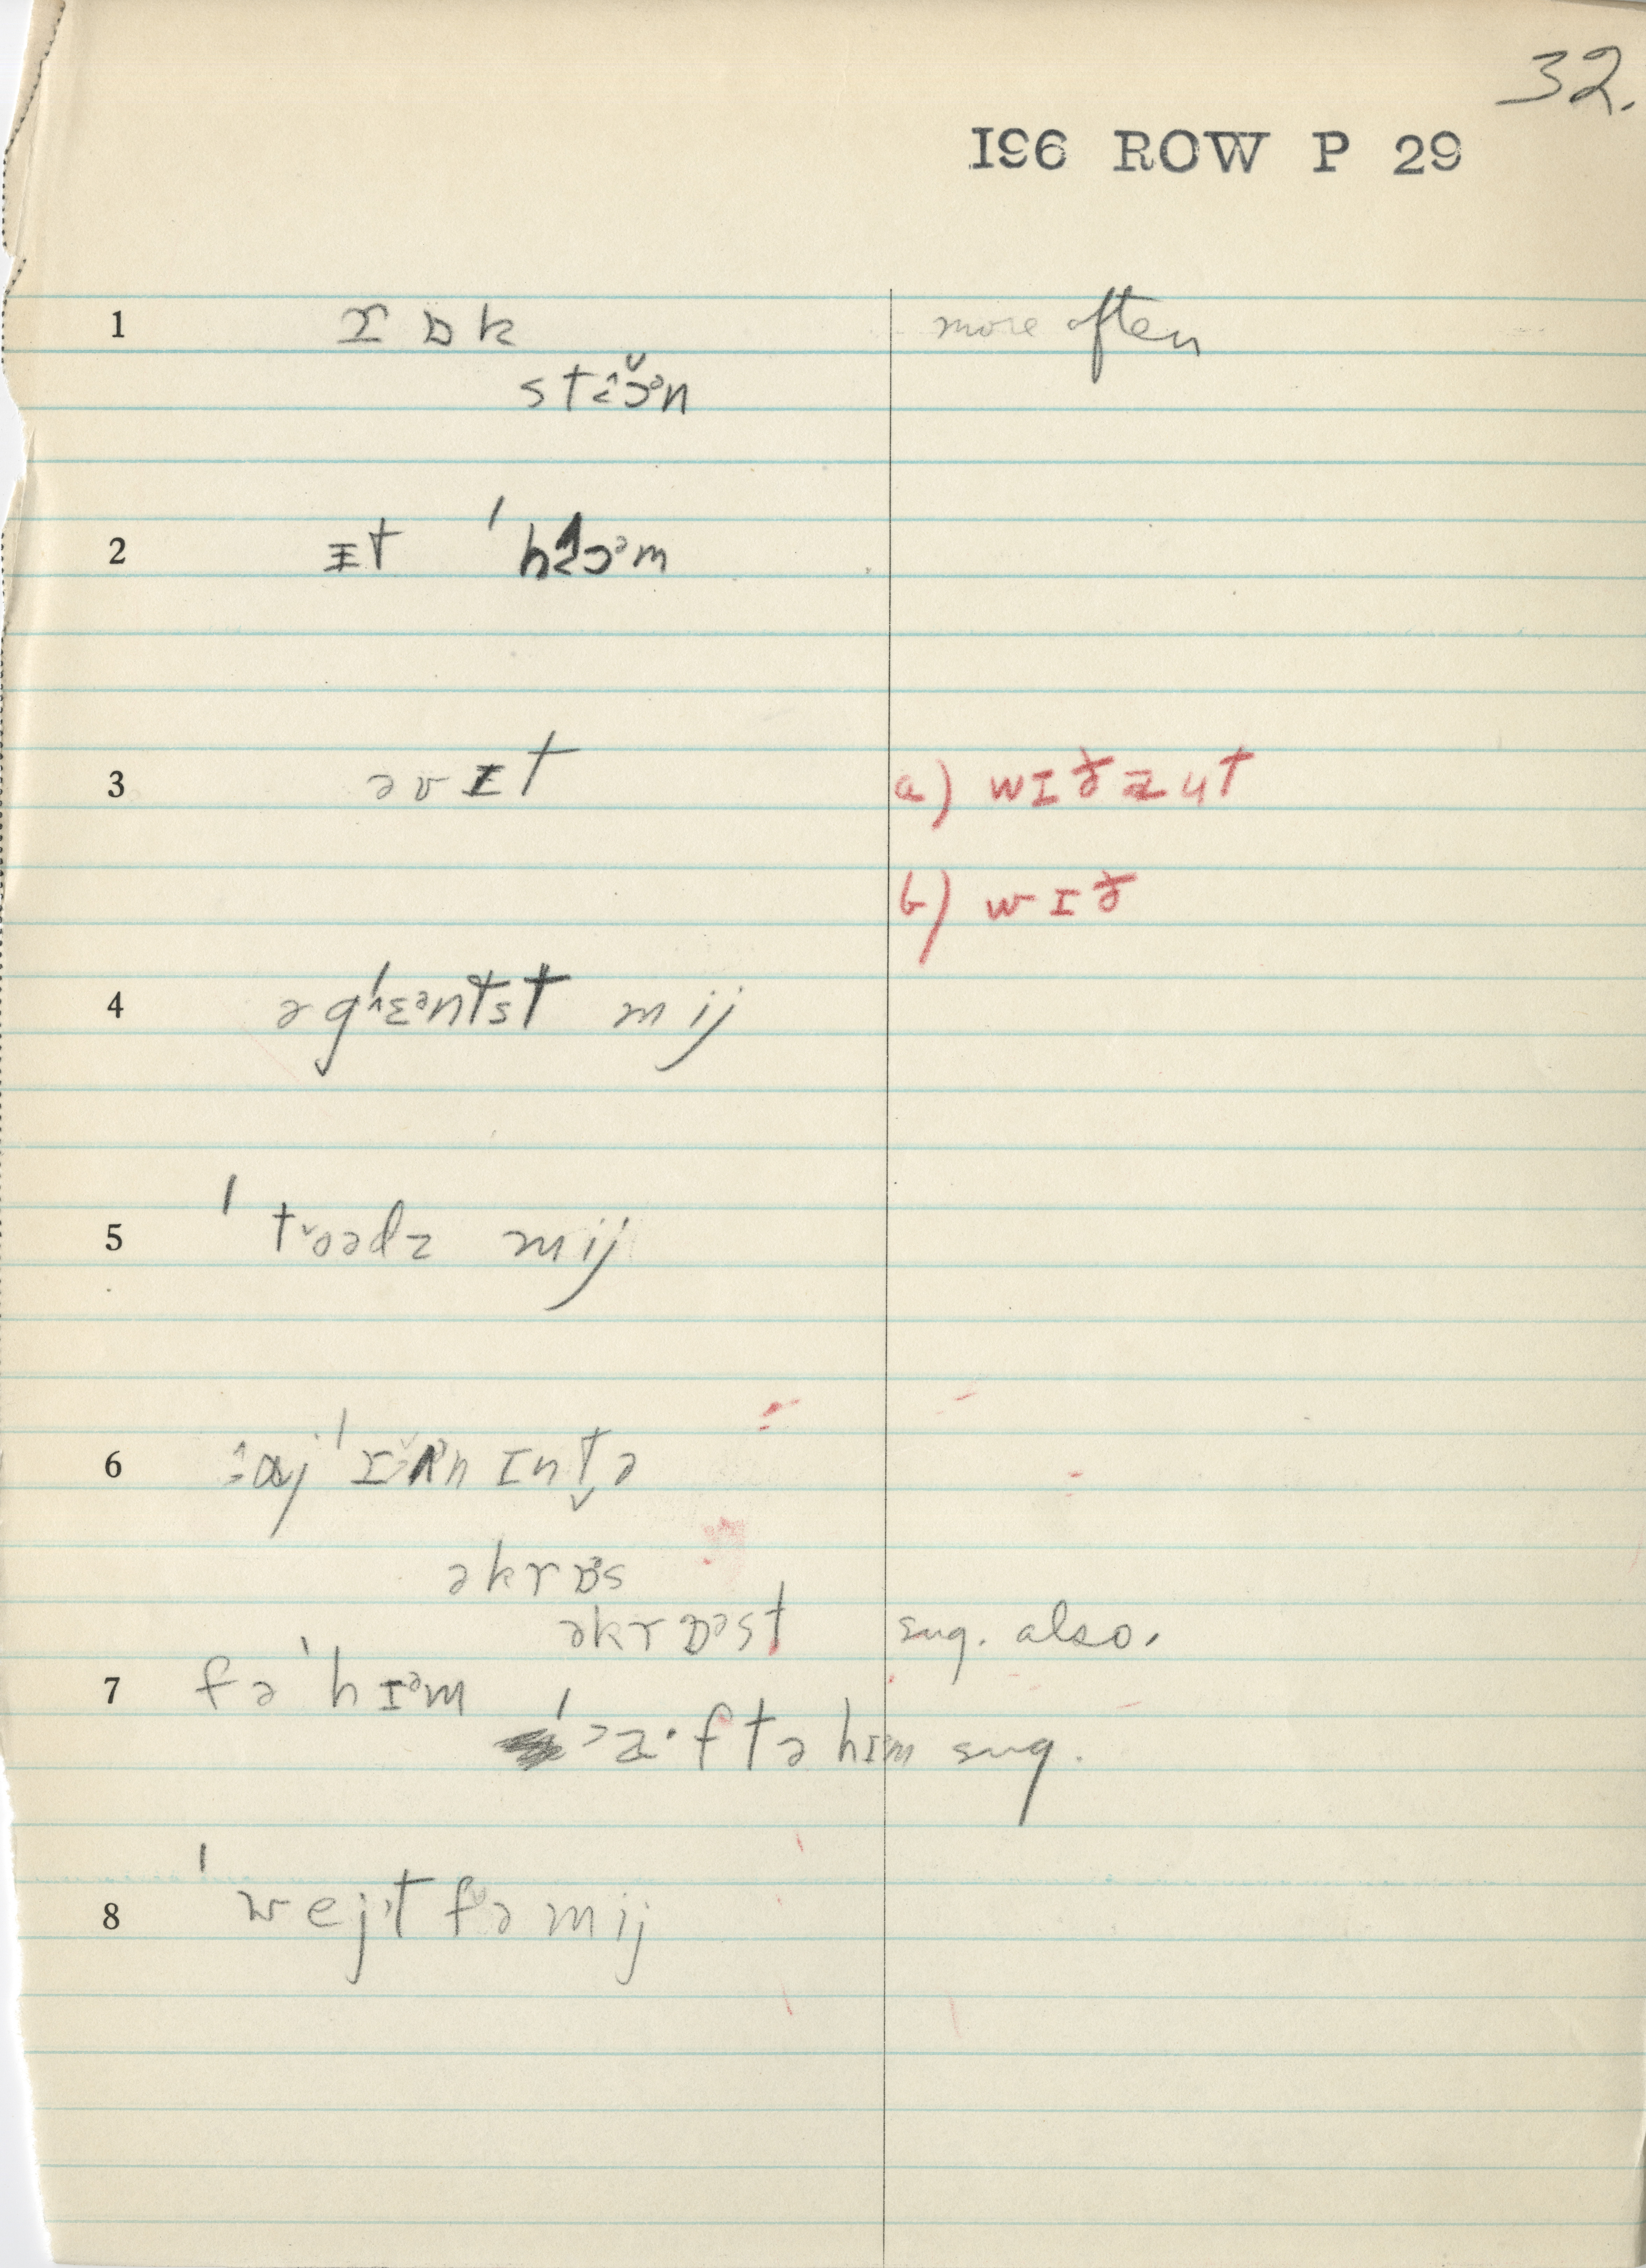 32.
I96 ROW P 29
1 rɒk more often
stɔən
2 ɪt ˈhɔəm
3 əvɪt a) wɪðaut
b) wɪð
4 əgɛəntst mij
5 ˈtoədz mij
6 ɪn tə
əkrɒəs
əkrɒəst sug. also.
7 fə ˈhɪəm
ˈaˑftə hɪm sug.
8 ˈwejt fə mij